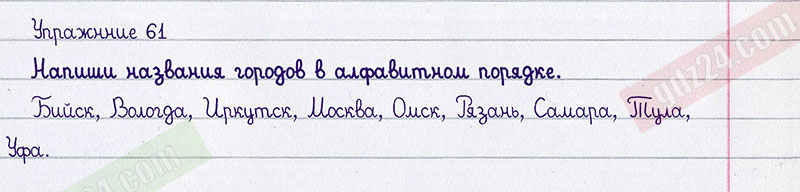 Упражнние 61
Напиши названия городов в алфавитном порядке.
Бийск, Вологда, Иркутск, Москва, Омск, Рязань, Самара, Тула,
Уфа.
gdz24.com
24.com